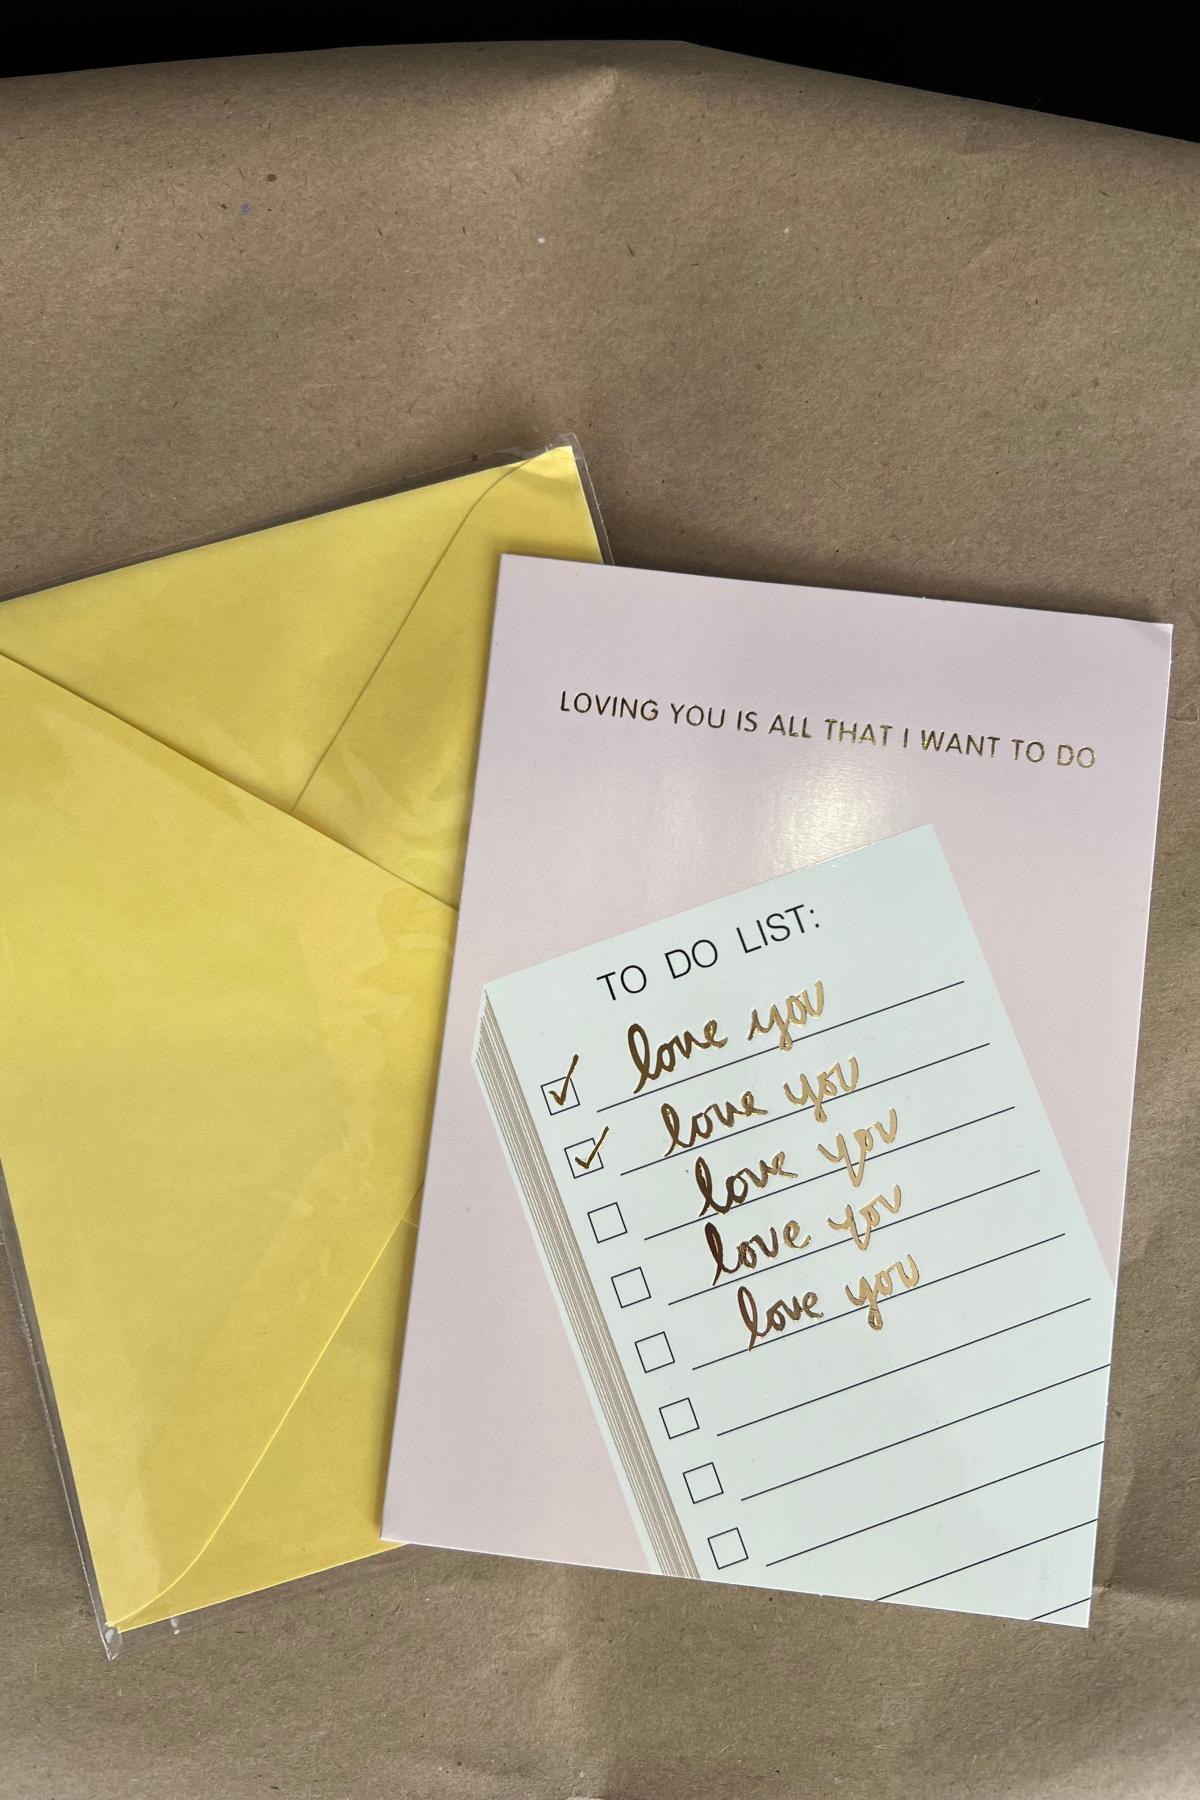 LOVING YOU IS ALL THAT I WANT TO DO
TO DO LIST:
love you
love you
love you
love you
love you